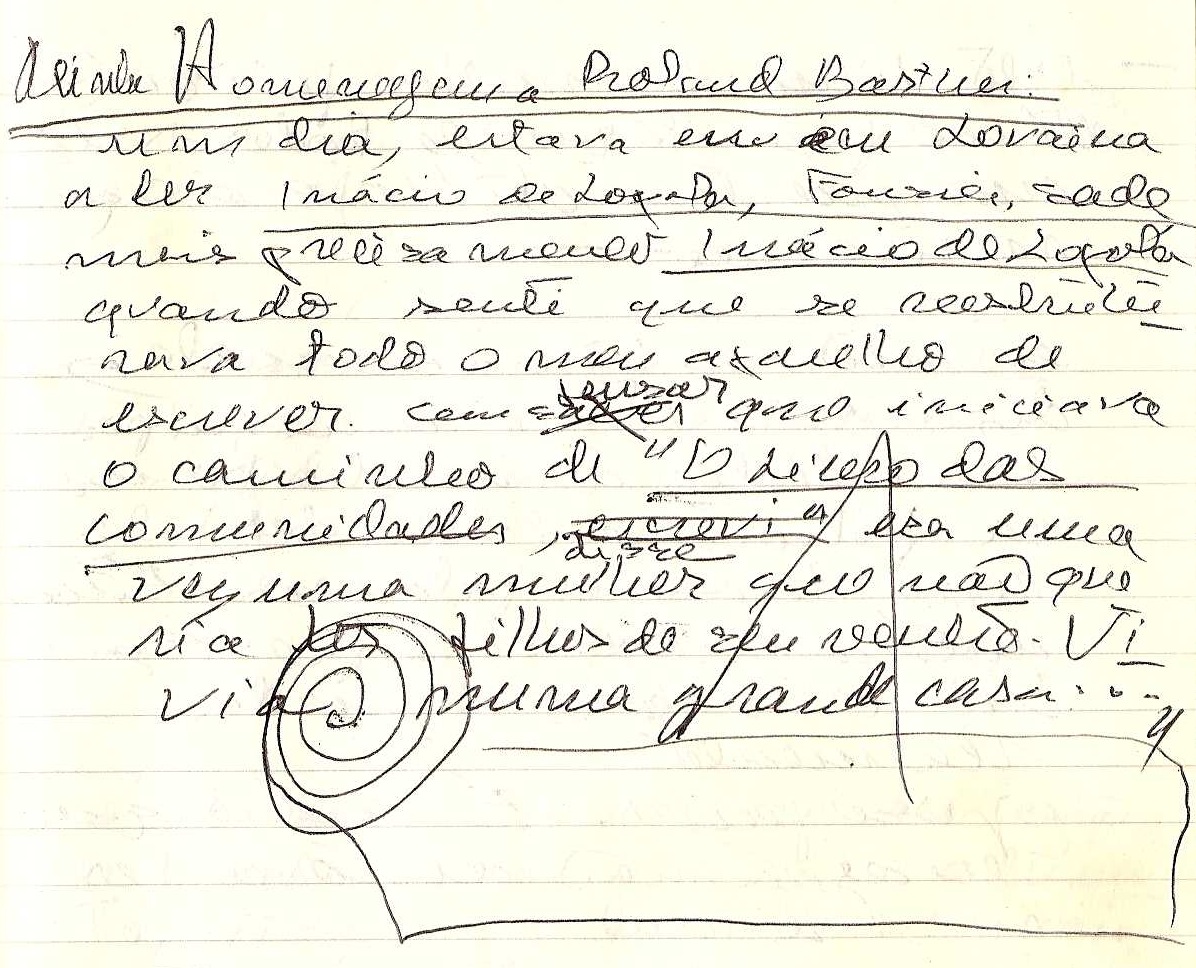 Homenagem a Roland Barthes.
um dia, estava eu em Lovaina
a ler Inácio de Loyola, Fourier, Sade
mais precisamente Inácio de Loyola
quando senti que se reestrutu
rava todo o meu aparelho de
pensar
escrever. sem saber que iniciava
o caminho de "O Livro das
comunidades, escrevi " era uma
disse
vez uma mulher que não que
ria ter filhos de seu ventre. Vi
via numa grande casa..."